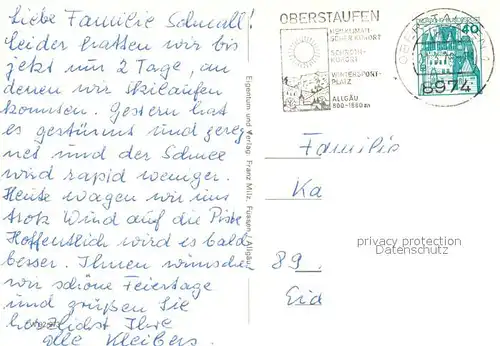 Liebe Familie Schmall!
Leider hatten wir bis
jetzt nur 2 Tage, an
denen wir skilaufen
konnten. Gestern hat
es gestürmt und gereg
net und der Schnee
wird rapid weniger.
Heute wagen wir uns
trotz Wind auf die Piste
Hoffentlich wird es bald
besser. Ihnen wünschen
wir schöne Feiertage
und grüßen Sie
herzlichst Ihre
alle Kleibers.
Eigentum und Verlag: Franz Milz, Füssen / Allgäu
OBERSTAUFEN
HEILKLIMAT-
ISCHER KURORT
SCHROTH-
KURORT
WINTERSPORT-
PLATZ
ALLGÄU
800-1860 m
8974
40
Familie
Ka
89
Eid
privacy protection
Datenschutz